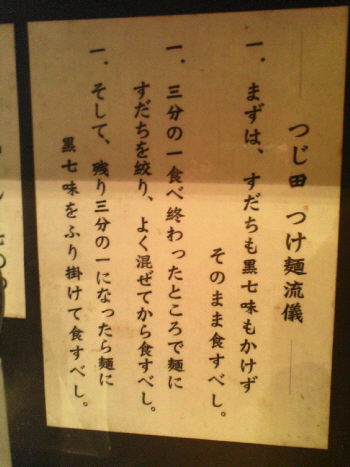 つじ田 つけ麺流儀
一、まずは、すだちも黒七味もかけず
そのまま食すべし。
一、三分の一食べ終わったところで麺に
すだちを絞り、よく混ぜてから食すべし。
一、そして、残り三分の一になったら麺に
黒七味をふり掛けて食すべし。